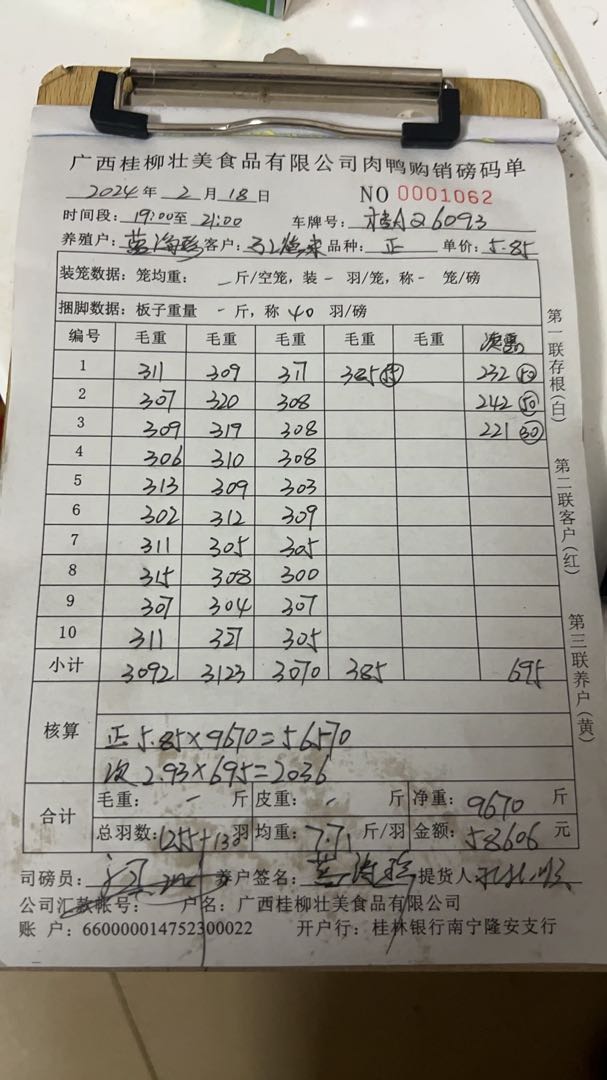 广西桂柳壮美食品有限公司肉鸭购销磅码单
2024 年 2 月 18 日 NO 0001062
时间段: 19:00至 21:00 车牌号: 桂A26093
养殖户: 客户: 品种: 正 单价: 5.85
装笼数据: 笼均重: - 斤/空笼, 装 - 羽/笼, 称 - 笼/磅
捆脚数据: 板子重量 - 斤, 称 40 羽/磅
编号 毛重 毛重 毛重 毛重 毛重
1 311 309 317 385 55 232 50
2 307 320 308 242 50
3 309 319 308 221 30
4 306 310 308
5 313 309 303
6 302 312 309
7 311 305 305
8 315 308 300
9 307 304 307
10 311 327 305
小计 3092 3123 3070 385 695
核算
正 5.85×9670=56570
次 2.93×695=2036
合计
毛重: - 斤 皮重: - 斤 净重: 9670 斤
总羽数: 羽 均重: 7.71 斤/羽 金额: 58606 元
司磅员: 养户签名: 提货人:
公司汇款帐号: 户名: 广西桂柳壮美食品有限公司
账 户: 660000014752300022 开户行: 桂林银行南宁隆安支行
第一联存根(白)
第二联客户(红)
第三联养户(黄)